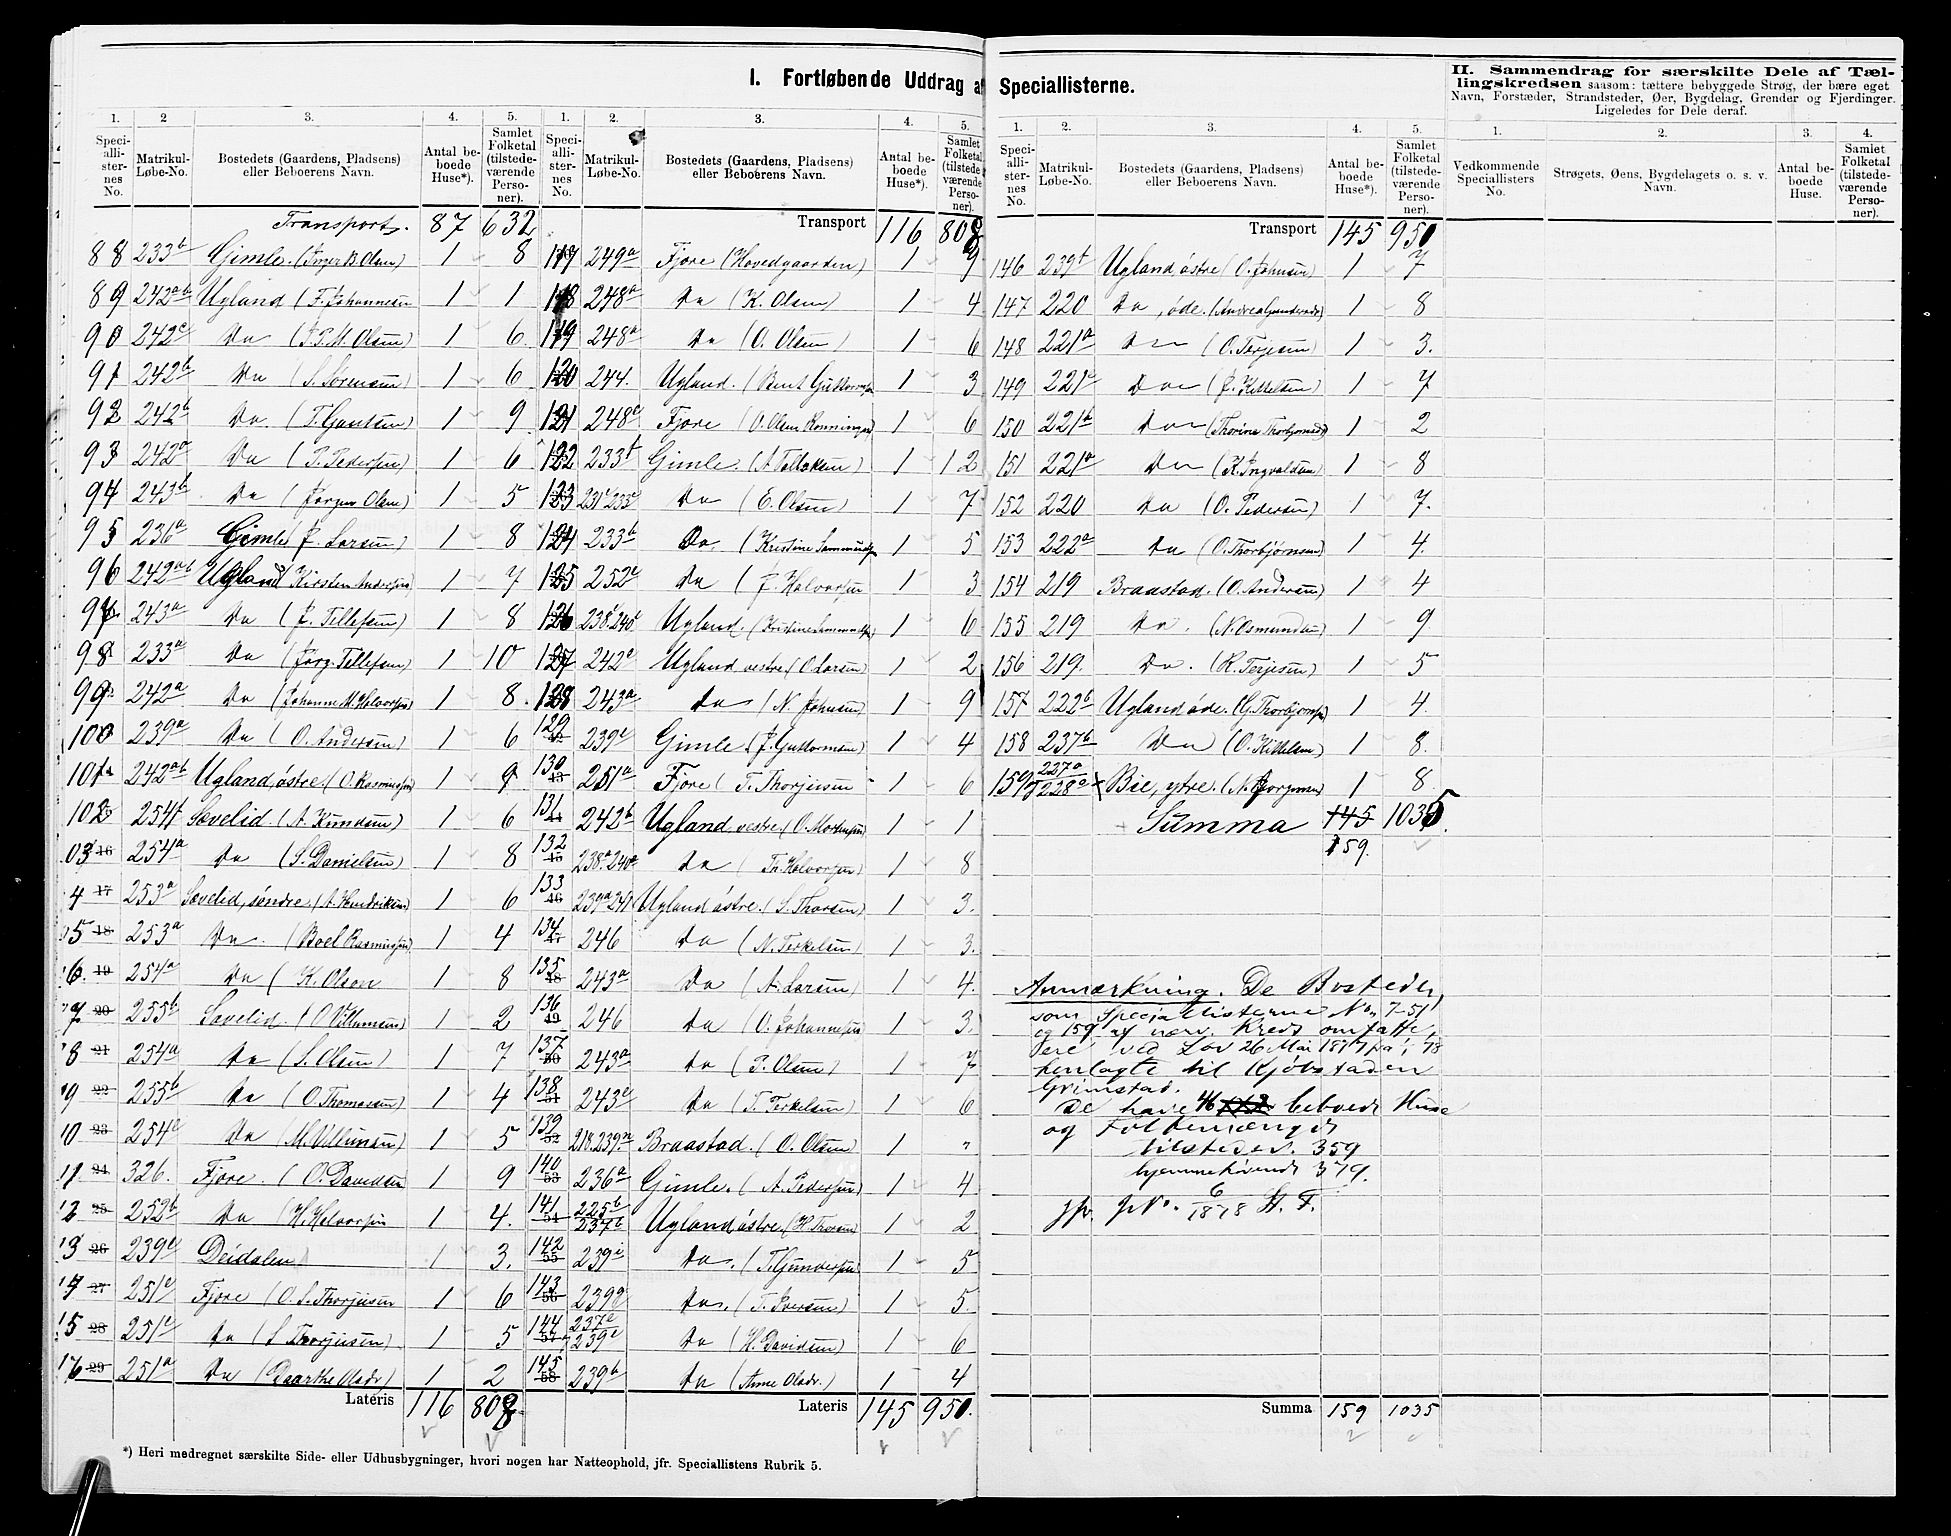 I. Fortløbende Uddrag af Speciallisterne.
II. Sammendrag for særskilte Dele af Tæl-
lingskredsen saasom: tættere bebyggede Strøg, der bære eget
Navn, Forstæder, Strandsteder, Øer, Bygdelag, Grender og Fjerdinger.
Ligeledes for Dele deraf.
1. 2 3. 4. 5.
Speci-alli-ster-nes No. Matrikul-Løbe-No. Bostedets (Gaardens, Pladsens) eller Beboerens Navn. Antal be-boede Huse*). Samlet Folketal (tilstede-værende Perso-ner).
Transport. 87 632
88 233b Gimle. (Inger B. Olsen) 1 8
89 242ab Ugland (F. Johannesen 1 1
90 242c Do (J.P.M. Olsen) 1 6
91 242b Do (S. Sørensen) 1 6
92 242b Do. (T. Gautsen) 1 9
93 242a Do (P. Pedersen) 1 6
94 243b Do (Jørgen Olsen) 1 5
95 236a Gimle (J. Larsen) 1 8
96 242ab Ugland (Kirsten Andersen) 1 7
97 243a Do (J. Tellefsen) 1 8
98 233a Do (Jørg. Tellefsen) 1 10
99 242a Do (Johanne M. Halvorsen) 1 8
100 239a Do (O. Andersen) 1 6
101 242ab Ugland østre. (O. Rasmussen) 1 9
102 254f Søvelid (A. Knudsen) 1 6
03 16 254a Do (S. Danielsen) 1 8
4 17 253a Søvelid, søndre. (A. Hendriksen) 1 6
5 18 253a Do. (Boel Rasmussen) 1 4
6. 19 254a Do (K. Olsen 1 8
7 20 255b Søvelid. (O. Villumsen) 1 2
8 21 254a Do (S. Olsen) 1 7
9 22 255b Do (O. Thomassen) 1 4
10 23 254e Do (M. Villumsen) 1 5
11 24 326. Fjøre. (O. Davidsen 1 9
12 25 252b Do (H. Halvorsen 1 4.
13 26 239e Deidalen) 1 3.
14 27 251c Fjøre (O. S. Thorjusen 1 6
15 28 251c Do (S Thorjusen) 1 5
16 29 251a Do (Daarthe Olsdr) 1 2
Lateris 116 808
*) Heri medregnet særskilte Side- eller Udhusbygninger, hvori nogen har Natteophold, jfr. Speciallistens Rubrik 5.
1. 2. 3. 4. 5.
Speci-alli-ster-nes No. Matrikul-Løbe-No. Bostedets (Gaardens, Pladsens) eller Beboerens Navn. Antal be-boede Huse*). Samlet Folketal (tilstede værende Perso-ner).
Transport 116 808
117 249a Fjøre (Hovedgaarden) 1 9
118 248a Do (K. Olsen) 1 4
119 248a Do (O. Olsen) 1 6
120 244. Ugland. (Bent Guttormsen 1 3
121 248c Fjøre (O. Olsen Rønningen) 1 6
122 233f Gimle. (A Tellefsen) 1 12
123 231c 233c Do (E. Olsen) 1 7
124 233b Do. (Kristine Sammundsen 1 5
125 252c Do (J. Halvorsen 1 3
126 238 240 Ugland. (Kristine Sammundsen) 1 6
127 242c Ugland vestre (O. Larsen) 1 2
128 243a Do (N. Johnsen) 1 9
129 239c Gimle. (J. Guttormsen) 1 4
130 43 251a Fjøre (T. Thorjusen 1 6
131 44 242b Ugland, vestre. (O. Mortensen) 1 1
132 45 238a 240a Do (Th. Halvorsen) 1 8
133 46 239a 241 Ugland østre. (S. Thorsen) 1 3.
134 47 246 Do (N. Terkelsen) 1 3.
135 48 243a Do (A. Larsen) 1 4.
136 49 246 Do (O. Johannesen) 1 3.
137 50 243a Do (P. Olsen) 1 7
138 51 243c Do (T. Terkelsen) 1 6
139 52 218. 239 Braastad. (O. Olsen) 1 "
140 53 236a Gimle. (A. Pedersen) 1 4
141 54 225b 237b Ugland østre (H. Thorsen) 1 2
142 55 239i Do. (T. Gundersen) 1 5
143 56 239g Do. (T. Iversen) 1 5.
144 57 237e 239e Do (H. Davidsen) 1 6
145 58 239b Do (Anne Olsdr.) 1 4
Lateris 145 950
1. 2. 3. 4. 5.
Speci-alli-ster-nes No. Matrikul-Løbe-No. Bostedets (Gaardens, Pladsens) eller Beboerens Navn. Antal be-boede Huse*). Samlet Folketal (tilstede-værende Perso-ner).
Transport 145 950
146 239f Ugland østre (O. Johnsen) 1 7
147 220 Do, øde. (Andrea Gundersdr) 1 8
148 221a Do (O. Terjesen) 1 3.
149 221c Do (J. Kittelsen) 1 7
150 221b Do (Thorine Thorbjørnsdr) 1 2
151 221a Do (K. Ingvaldsen) 1 8
152 220 Do (O. Pedersen) 1 7.
153 222a Do (O. Thorbjørnsen) 1 4.
154 219 Braastad. (O. Andersen) 1 4
155 219 Do. (N. Osmundsen) 1 9
156 219. Do. (R. Terjesen) 1 5
157 222b Ugland øde. (G. Thorbjørnsen) 1 4.
158 237b Do (O. Kittelsen) 1 8.
159 227a 228a Bie, ytre. (N. Bjørgman) 1 8
Summa 145 1035.
159.
Anmærkning. De Bosteder,
som Speciallisterne No. 7-51
og 159 af nærv. Kreds omfatte,
ere ved Lov 26 Mai 1877 fra 1/1 78
henlagte til Kjøbstaden
Grimstad.
De have 46 beboede Huse
og Folkemængde
tilstedev. 359
hjemmehørende 379.
jfr. JNo. 6/1878 St. F.
Summa 159 1035
1. 2. 3. 4.
Vedkommende Speciallisters No. Strøgets, Øens, Bygdelagets o. s. v. Navn. Antal be-boede Huse. Samlet Folketal (tilstede-værende Perso-ner).